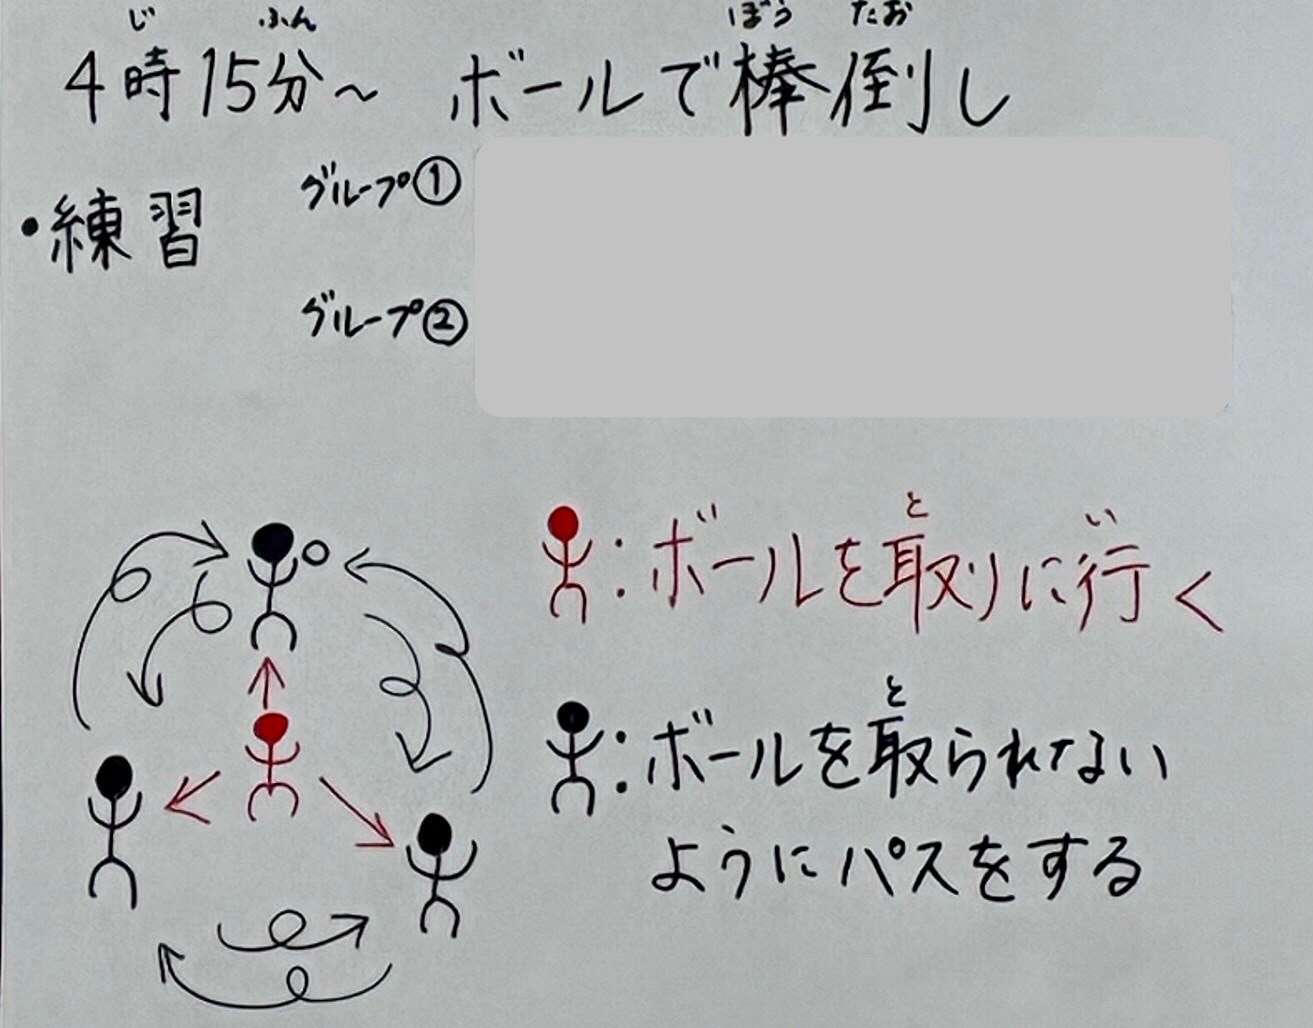 じ ふん ぼう たお
4時15分~ ボールで棒倒し
・練習 グループ①
グループ②
と い
:ボールを取りに行く
と
:ボールを取られない
ようにパスをする